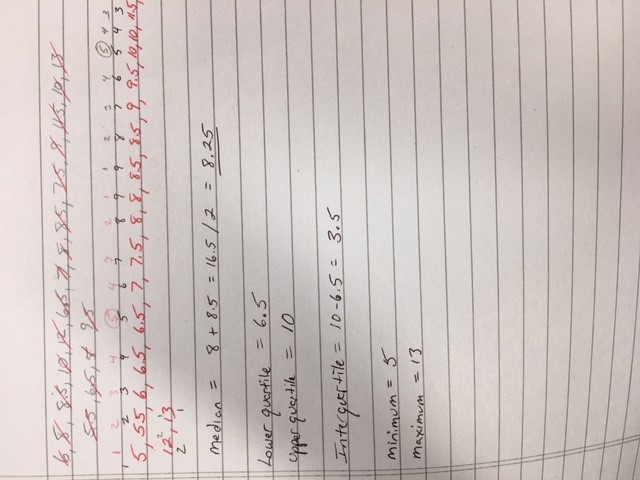 6, 8, 8.5, 10, 12, 6.5, 7, 8, 8.5, 7.5, 9, 11.5, 10, 13
5.5, 6.5, 9.5
1 2 3 4 5 4 3 2 1 1 2 3 4 5 4 3
1 2 3 4 5 6 7 8 9 9 8 7 6 5 4 3
5, 5.5, 6, 6.5, 6.5, 7, 7.5, 8, 8, 8.5, 8.5, 9, 9.5, 10, 10, 11.5,
12, 13
2 1
median = 8 + 8.5 = 16.5 / 2 = 8.25
Lower quartile = 6.5
upper quartile = 10
Interquartile = 10 - 6.5 = 3.5
minimum = 5
maximum = 13